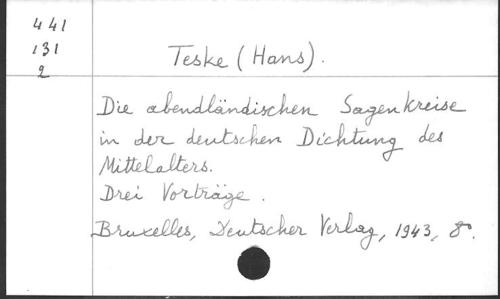 441
131
2
Teske (Hans).
Die abendländischen Sagenkreise
in der deutschen Dichtung des
Mittelalters.
Drei Vorträge.
Bruxelles, Deutscher Verlag, 1943, 8°.